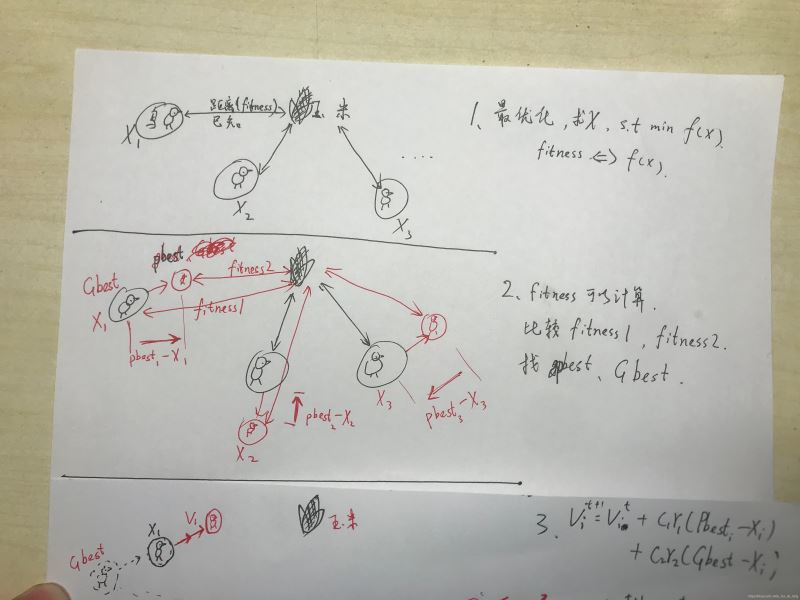 距离(fitness)
已知。
鸟
玉米
X1
X2
X3
....
1、最优化，求X，s.t min f(X).
fitness <=> f(X).
pbest
Gbest
fitness2
fitness1
X1
pbest1-X1
X2
pbest2-X2
X3
pbest3-X3
2、fitness 可以计算.
比较 fitness1, fitness2.
找 pbest、Gbest.
X1
V1
Gbest
玉米
3. Vi^t+1 = Vi^t + C1r1(Pbesti-Xi)
+ C2r2(Gbest-Xi)